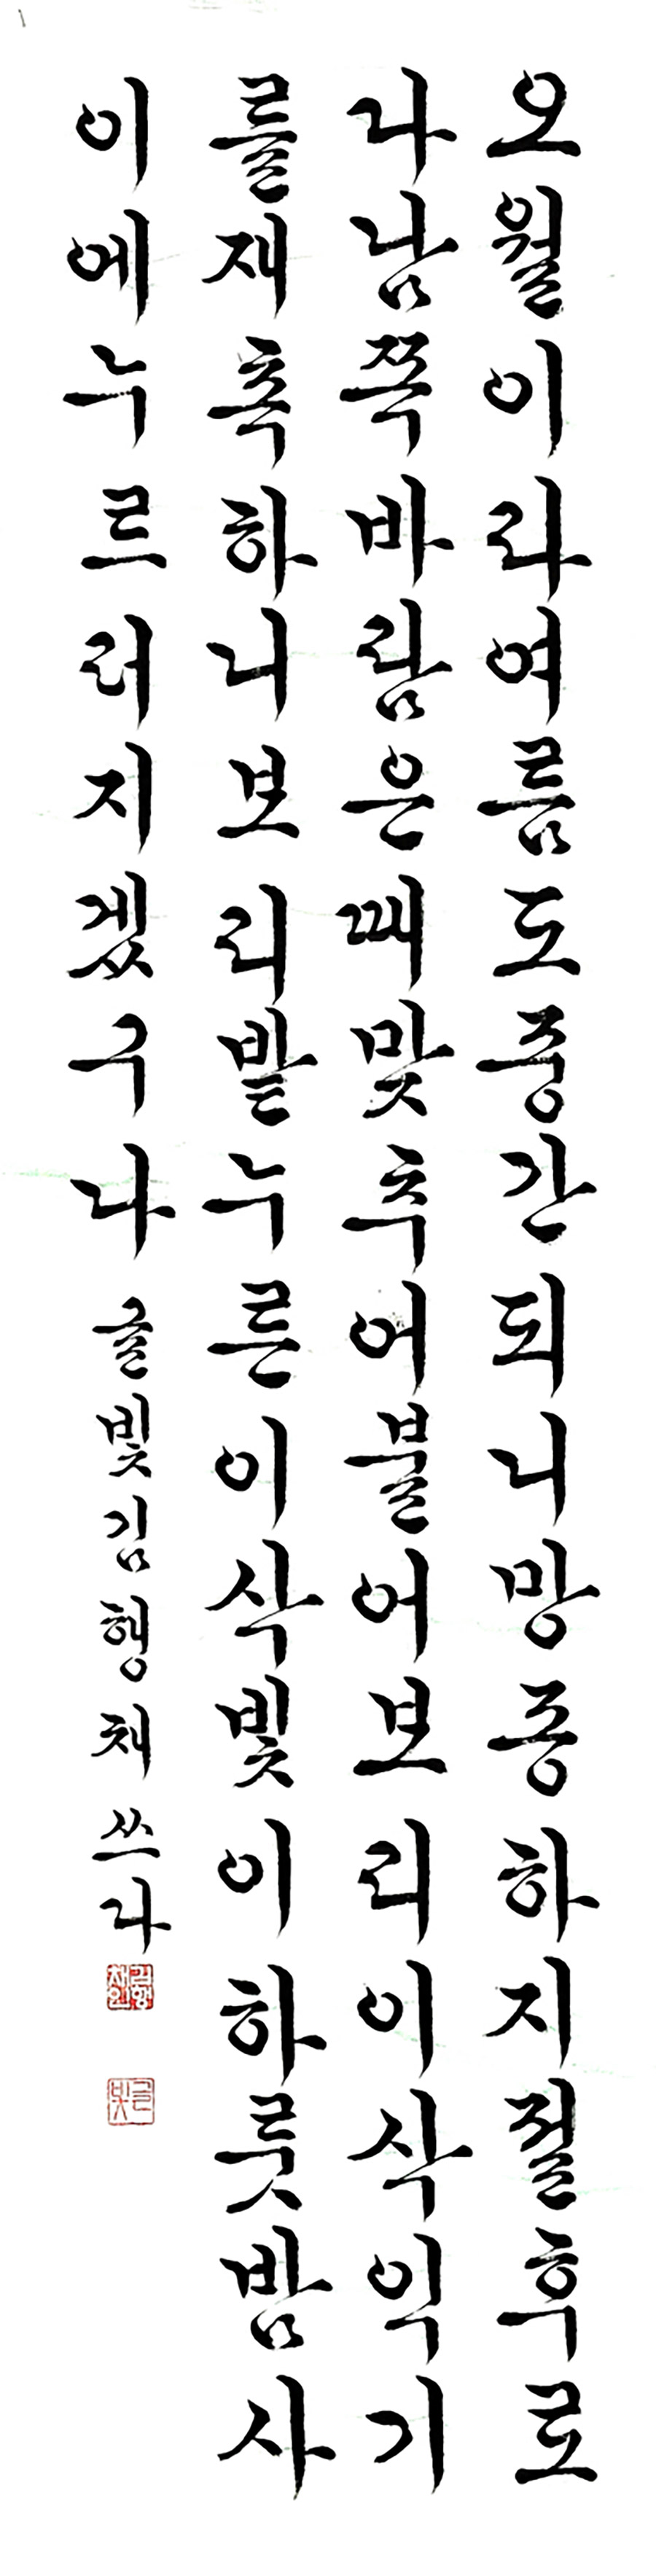 오월이라여름도중간되니망종하지절후로
다남쪽바람은때맞추어불어보리이삭익기
를재촉하니보리밭누른이삭빛이하룻밤사
이에누르러지겠구나 글빛김형채쓰다
글빛